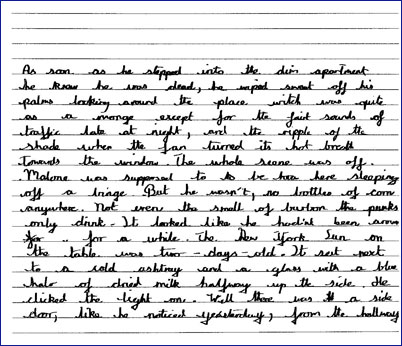 As soon as he stepped into the dim apartment
he knew he was dead, he wiped sweat off his
palms looking around the place witch was quite
as a monge except for the faint sounds of
traffic late at night, and the ripple of the
shade when the fan turned its hot breath
Towards the window. The whole scene was off.
Malone was supposed to to be here sleeping
off a binge. But he wasn't, no bottles of corn
anywhere. Not even the small of burbon the punks
only drink. It looked like he hadn't been
for .. for a while. The New York Sun on
the table was two-days-old. It sat next
to a cold ashtray and a glass with a blue
halo of dried milk halfway up the side He
clicked the light on. Well there was a side
door, like he noticed yesterday, from the hallway